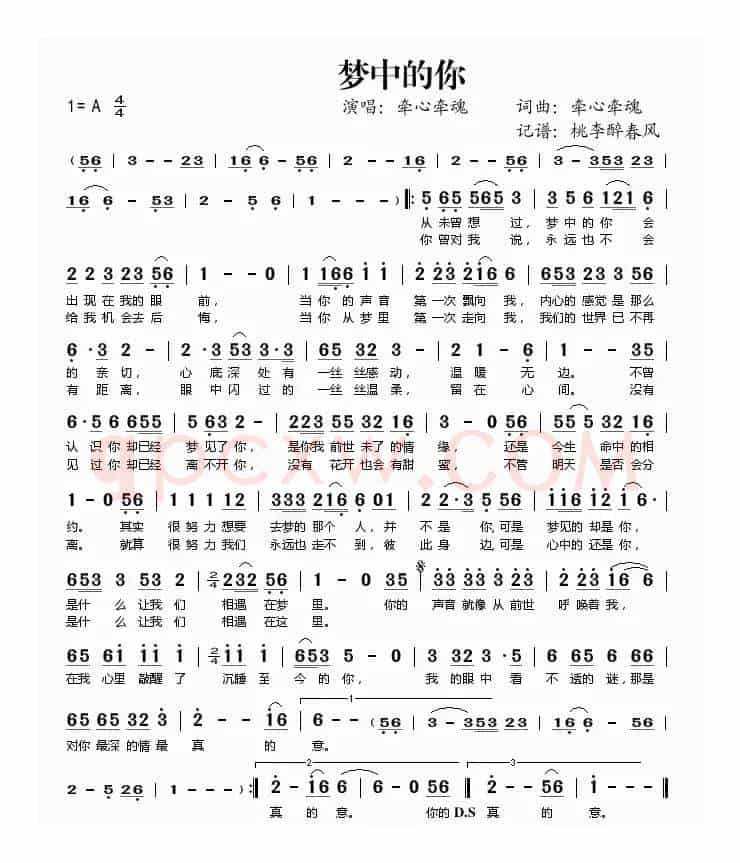 梦中的你
1=A 4/4
演唱：牵心牵魂 词曲：牵心牵魂
记谱：桃李醉春风
(56 | 3 - - 23 | 166 - 56 | 2 - - 16 | 2 - - 56 | 3 - 3532 23
166 - 53 | 2 - 5 6 | 1 - - - ) ‖: 5 65 565 3 | 3 5 6 121 6 |
从未曾想 过，梦中的你 会
你曾对我 说，永远也不 会
2 2 3 23 56 | 1 - - 0 | 1 166 1 1 | 2 23 216 6 | 653 3 23 5 |
出现在我的眼 前， 当你 的声音 第一次飘向 我，内心的感觉是那么
给我机会去后 悔， 当你 从梦里 第一次走向 我，我们的世界已不再
6·3 2 - | 2·3 53 3·2 | 1 65 5 32 | 2 1 - 6 | 1 - - 35 |
的 亲切， 心 底深 处有 一丝 丝感动， 温暖 无 边。 不曾
有 距离， 眼 中闪 过的 一丝 丝温柔， 留在 心 间。 没有
6·5 6 655 | 5 63 2 - | 2 23 55 32 2 | 3 - 0 56 | 55 5 32 16 |
认 识你 却已经 梦见了你， 是你我 前世 未了的 情 缘， 还是 今生 命中的相
见 过你 却已经 离不开你， 没有 花开 也会有甜 蜜， 不管 明天 是否 会分
1 - 0 56 | 1 1 11 12 | 333 216 6 01 | 2 2·3 5 56 | 116 12 16· |
约。 其实 很努力 想要 去梦的 那个 人，并 不 是 你,可是 梦见的 却是 你，
离。 就算 很努力 我们 永远也 走不 到，彼 此 身 边,可是 心中的 还是 你，
653 3 53 2 | 2/4 232 56 | 1 - 0 35 | 33 33 3 23 | 22 3 16 6 |
是什 么 让我 们 相遇 在梦 里。 你的 声音 就像 从前世 呼唤着 我，
是什 么 让我 们 相遇 在这 里。
65 61 11 1 | 2/4 12 3 | 653 5 - 0 | 3 32 3 2· | 3 5 5 65 |
在我 心里 敲醒 了 沉睡 至 今的 你， 我 的眼 中 看 不 透的 谜，那是
65 65 32 3 | 2 - - 16 | 6 - - (56 | 3 - 3532 23 | 166· 53 |
对你 最深 的情 最 真 的 意。
2 - 5 26 | 1 - - -) :‖ 2 - 16 6 | 6 - 0 56 ‖ 2 - 56 | 6 - - - ‖
真 的 意。 你的 D.S 真 的 意。
qpcxw.COM